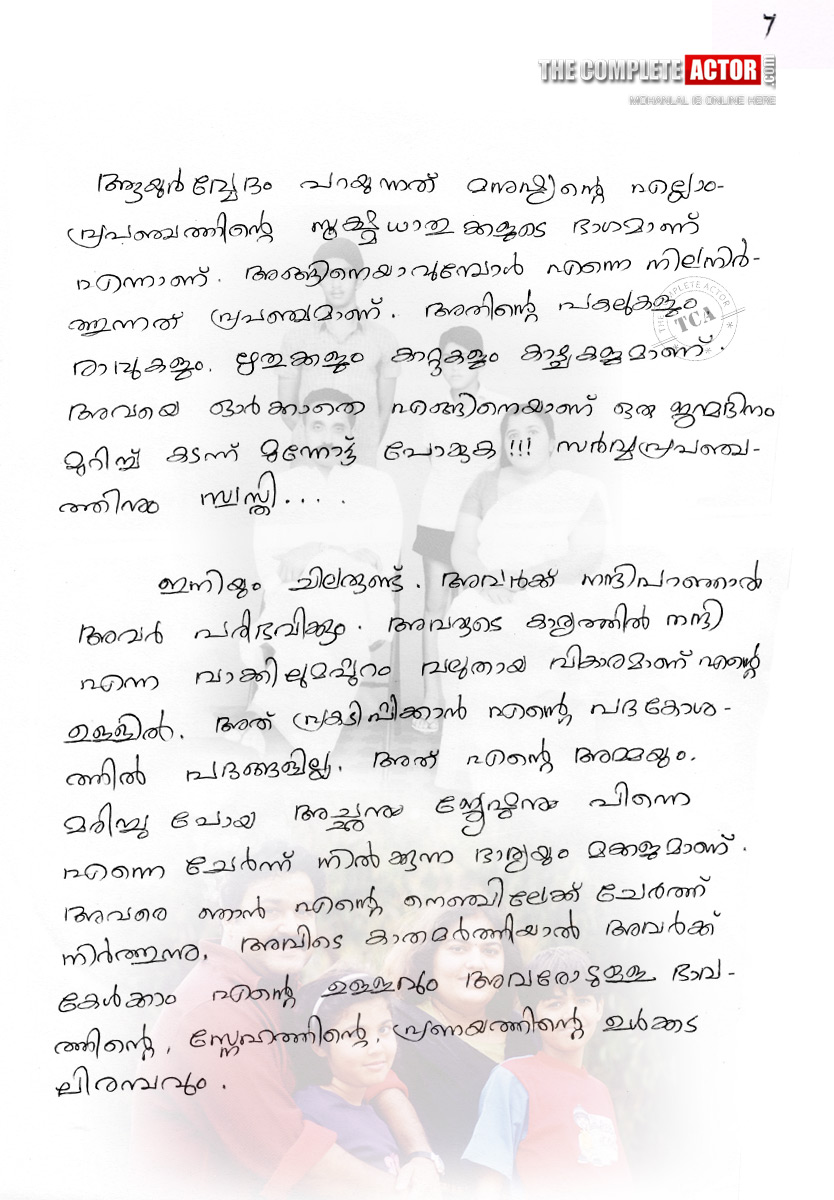 7
THE COMPLETE ACTOR .com
MOHANLAL IS ONLINE HERE
ആയുർവ്വേദം പറയുന്നത് മനുഷ്യന്റെ എല്ലാം-
പ്രപഞ്ചത്തിന്റെ സൂക്ഷ്മധാതുക്കളുടെ ഭാഗമാണ്
എന്നാണ്. അങ്ങിനെയാവുമ്പോൾ എന്നെ നിലനിർ-
ത്തുന്നത് പ്രപഞ്ചമാണ്. അതിന്റെ പകലുകളും
THE COMPLETE ACTOR
TCA
രാവുകളും. ഋതുക്കളും കാറ്റുകളും കാഴ്ചകളുമാണ്.
അവയെ ഓർക്കാതെ എങ്ങിനെയാണ് ഒരു ജന്മദിനം
മുറിച്ച് കടന്ന് മുന്നോട്ട് പോകുക !!! സർവ്വപ്രപഞ്ച-
ത്തിനും സ്വസ്തി....
ഇനിയും ചിലരുണ്ട്. അവർക്ക് നന്ദിപറഞ്ഞാൽ
അവർ പരിഭവിക്കും. അവരുടെ കാര്യത്തിൽ നന്ദി
എന്ന വാക്കിലുമപ്പുറം വലുതായ വികാരമാണ് എന്റെ
ഉള്ളിൽ. അത് പ്രകടിപ്പിക്കാൻ എന്റെ പദകോശ-
ത്തിൽ പദങ്ങളില്ല. അത് എന്റെ അമ്മയും.
മരിച്ചു പോയ അച്ഛനും ജ്യേഷ്ഠനും പിന്നെ
എന്നെ ചേർന്ന് നിൽക്കുന്ന ഭാര്യയും മക്കളുമാണ്.
അവരെ ഞാൻ എന്റെ നെഞ്ചിലേക്ക് ചേർത്ത്
നിർത്തുന്നു. അവിടെ കാതമർത്തിയാൽ അവർക്ക്
കേൾക്കാം എന്റെ ഉള്ളവും അവരോടുള്ള ഭാവ-
ത്തിന്റെ, സ്നേഹത്തിന്റെ, പ്രണയത്തിന്റെ ഉൾക്കട
ലിരമ്പവും.